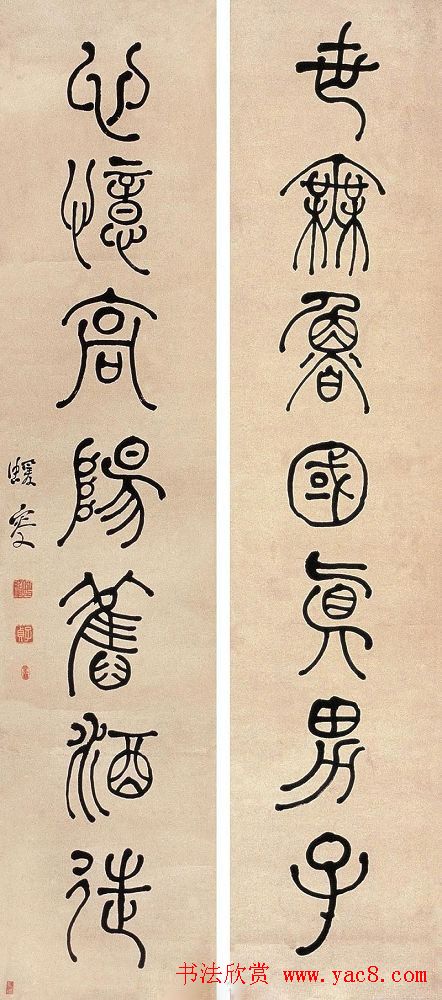 世無魯國眞男子
心憶高陽舊酒徒
蝯叟
书法欣赏 www.yac8.com